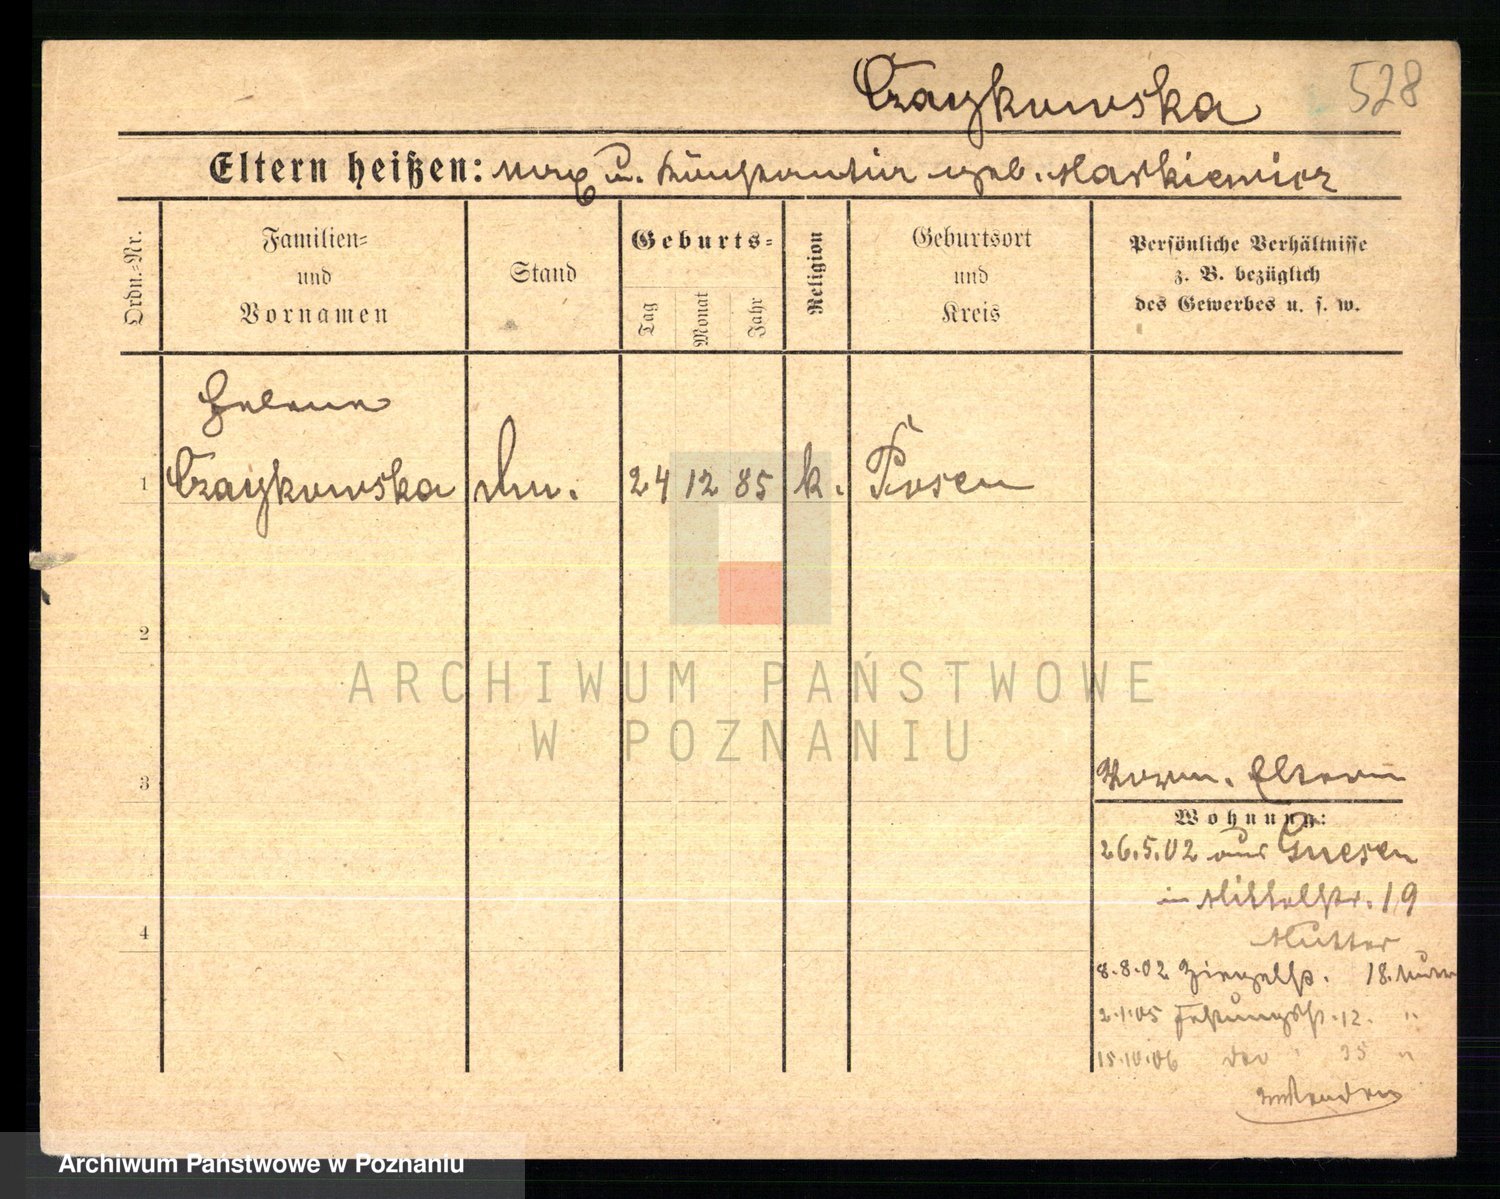 Czaykowska 528
Eltern heißen: Max u. Konstantia geb. Markiewicz
Ordn.=Nr.
Familien= und Vornamen
Stand
Geburts=
Tag
Monat
Jahr
Religion
Geburtsort und Kreis
Persönliche Verhältnisse z. B. bezüglich des Gewerbes u. s. w.
Helene
1 Czaykowska 24 12 85 k. Posen
2
3
4
Eltern
Wohnung:
26.5.02 aus Gnesen
in Mittelstr. 19
Mutter
8.8.02 Ziegelstr. 18. Mutter
2.1.05 Festungsstr. 12. "
15.10.06 35 "
ARCHIWUM PAŃSTWOWE
W POZNANIU
Archiwum Państwowe w Poznaniu